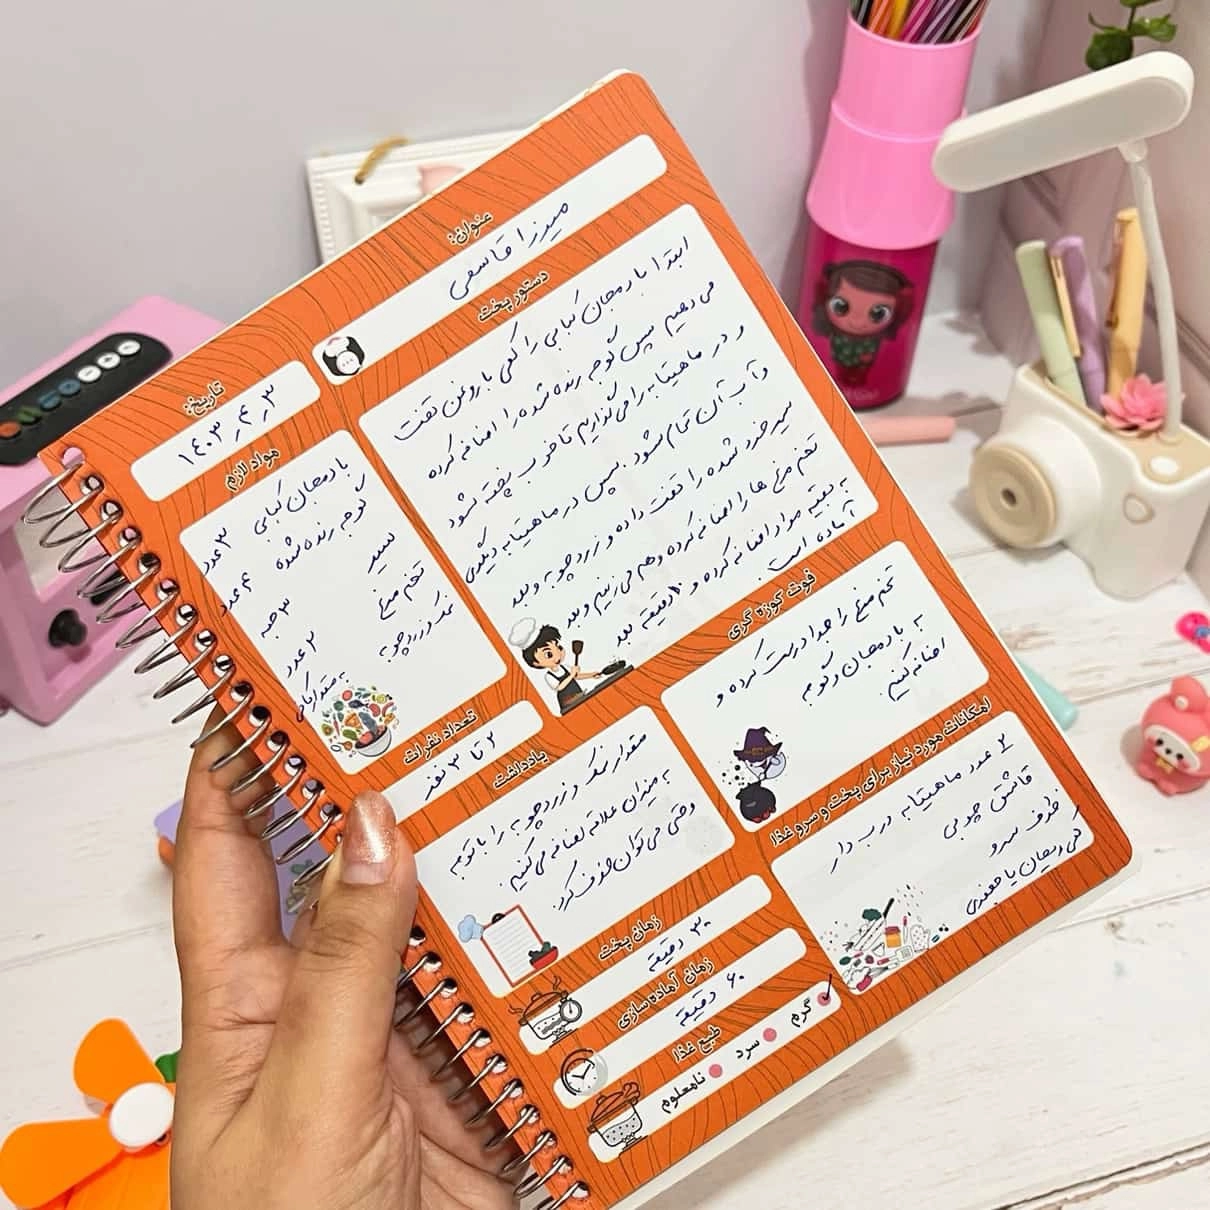 عنوان:
میرزا قاسمی
دستور پخت
ابتدا بادمجان کبابی را کمی با روغن تفت
می دهیم سپس گوجه رنده شده را اضافه کرده
و در ماهیتابه را می گذاریم تا خوب پخته شود
و آب آن تمام شود. سپس در ماهیتابه دیگری
سیر خرد شده را تفت داده و زردچوبه و بعد
تخم مرغ ها را اضافه کرده و هم می زنیم و بعد
به بقیه مواد اضافه کرده و ۱۰ دقیقه بعد
آماده است.
تاریخ:
۱۴۰۳_۴_۳
مواد لازم
بادمجان کبابی ۳ عدد
گوجه رنده شده ۴ عدد
سیر ۳ حبه
تخم مرغ ۲ عدد
نمک و زردچوبه به مقدار کافی
تعداد نفرات
۲ تا ۳ نفر
فوت کوزه گری
تخم مرغ را جدا درست کرده و
به بادمجان و گوجه
اضافه کنیم.
یادداشت
مقدار نمک و زردچوبه را با توجه
به میزان علاقه اضافه می کنیم.
و حتی می توان حذف کرد.
امکانات مورد نیاز برای پخت و سرو غذا
۲ عدد ماهیتابه درب دار
قاشق چوبی
ظرف سرو
کمی ریحان یا جعفری
زمان پخت
۳۰ دقیقه
زمان آماده سازی
۶۰ دقیقه
طبع غذا
گرم سرد نامعلوم